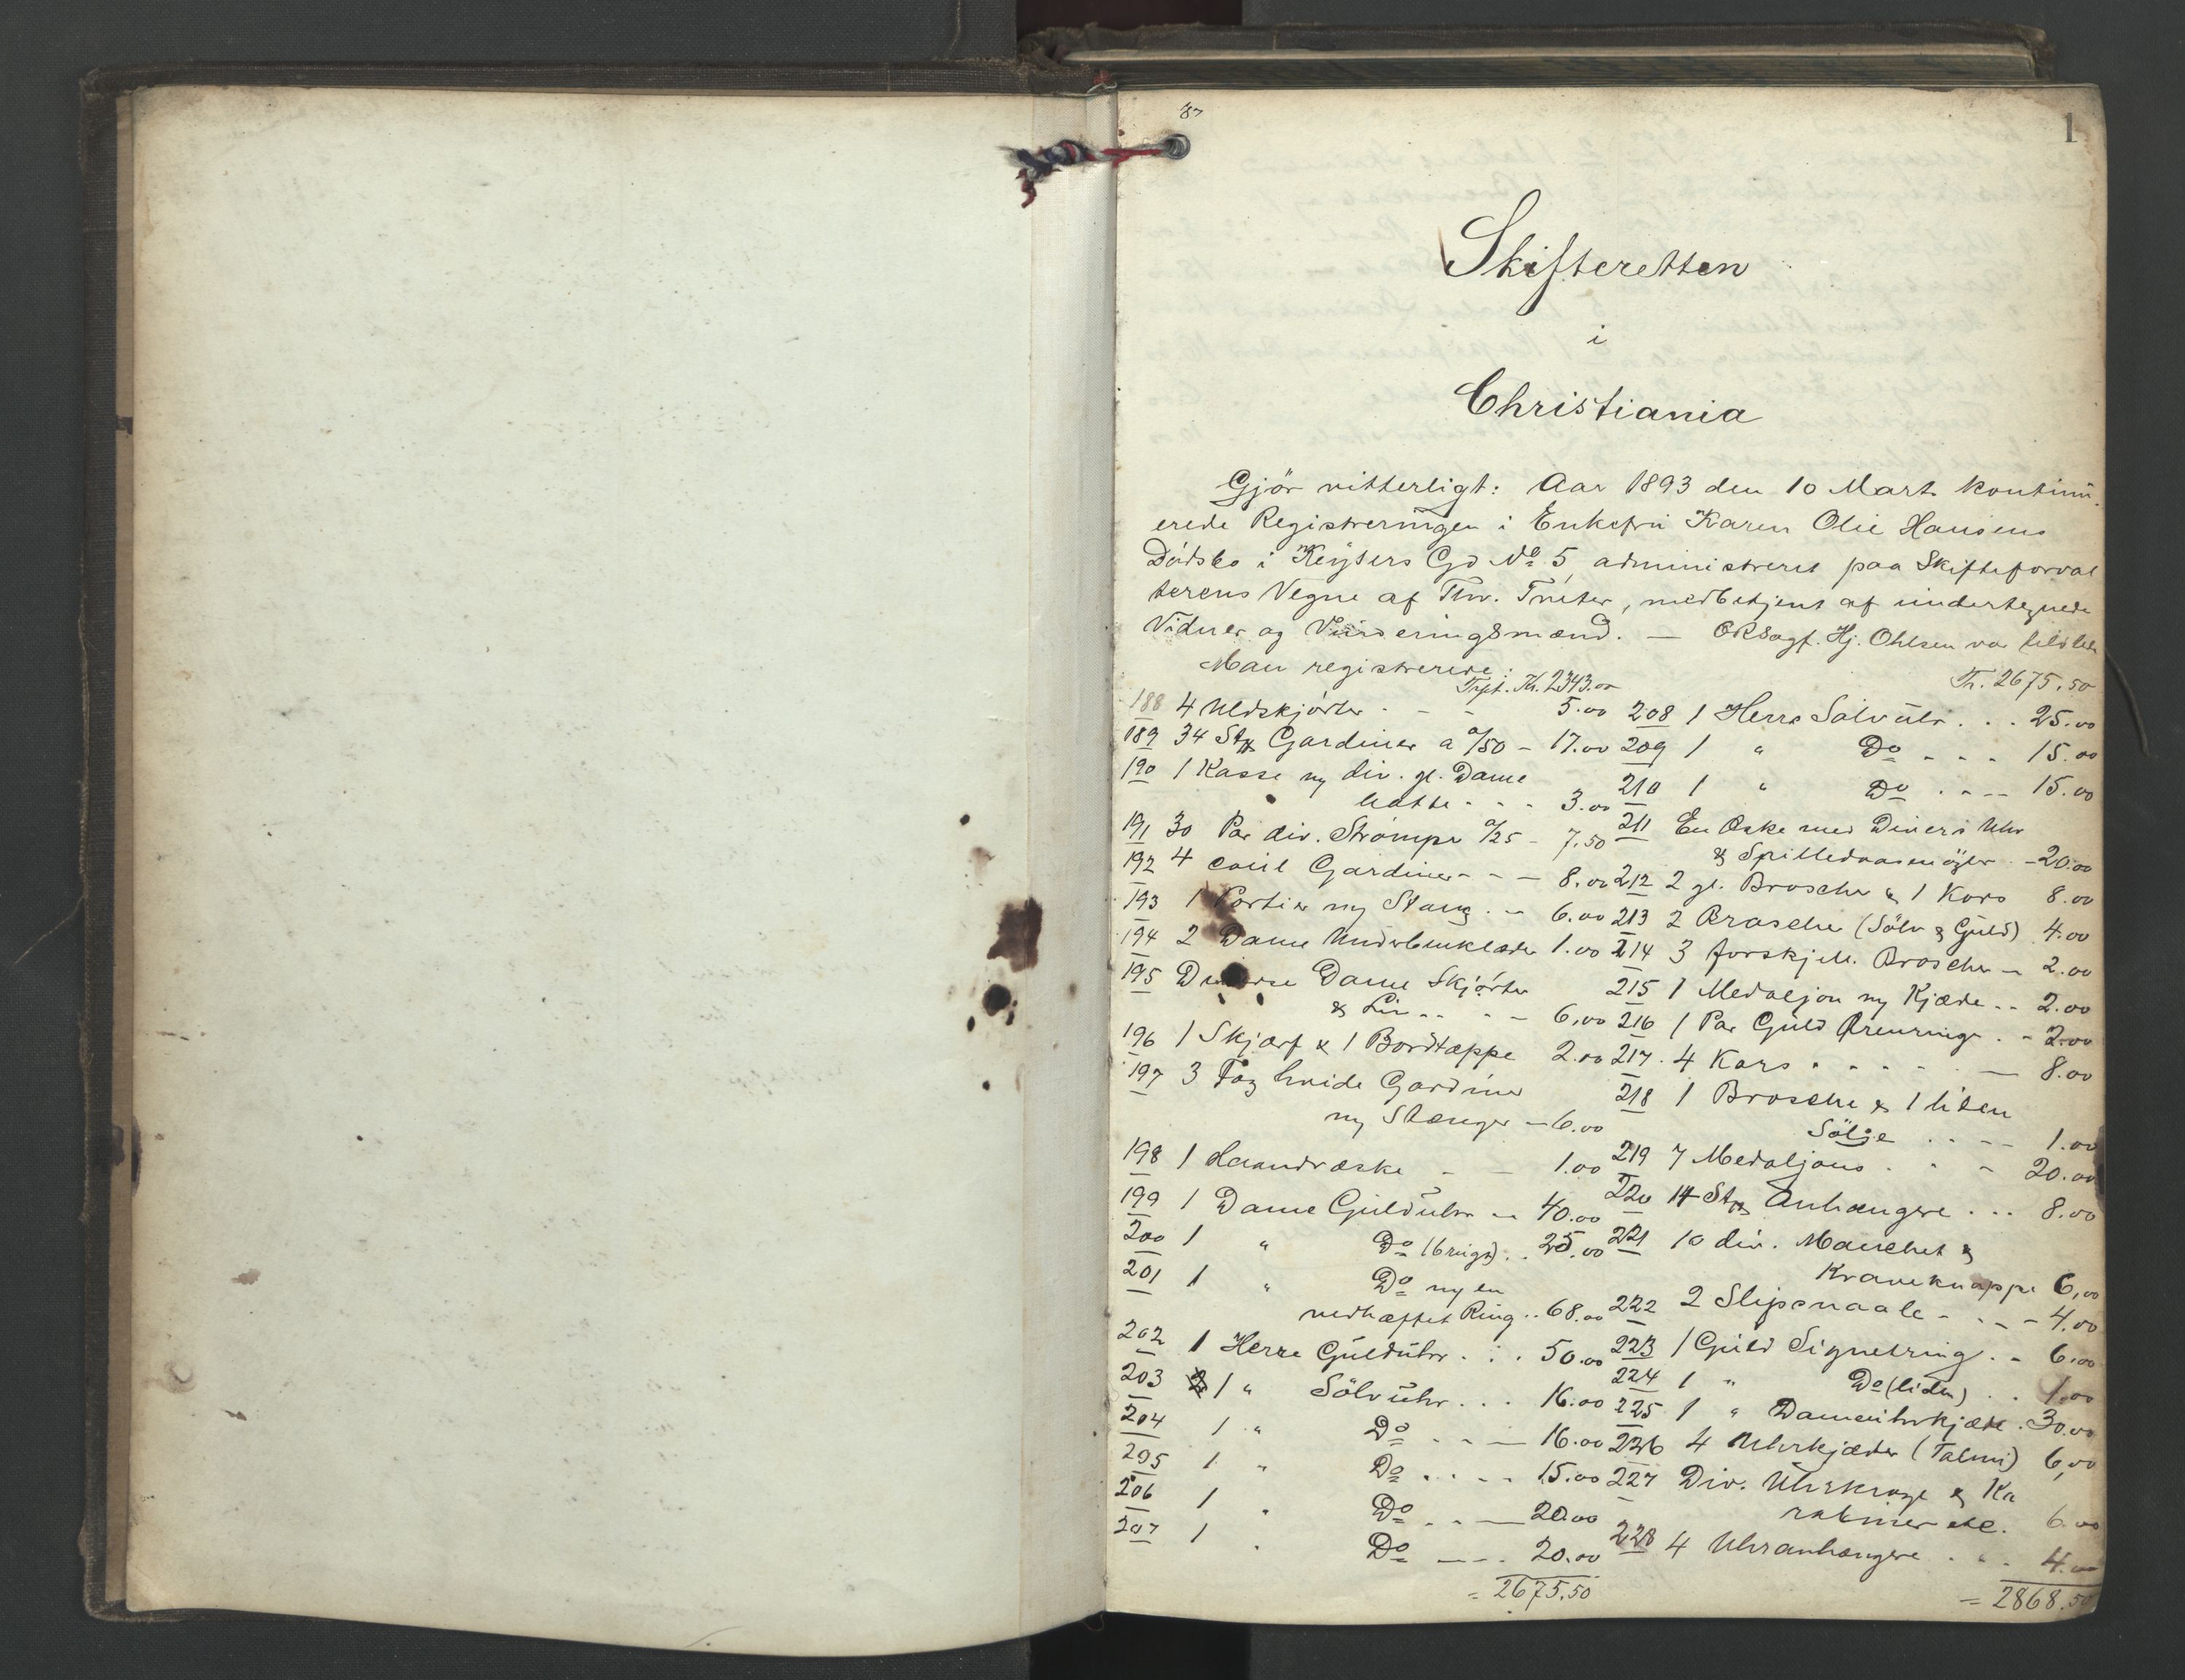 87
1
Skifteretten
i
Christiania
Gjör vitterligt: Aar 1893 den 10 Marts kontinu
erede Registreringen i Enkefru Karen Olie Hansens
Dödsbo i Keysers Gd No 5, administreret paa Skifteforval
terens Vegne af Thv. , medbetjent af undertegnede
Vidner og Vurderingsmænd. — ORSagf. Hj. Ohlsen var tilstede
Man registrerede:
Trpt. Kr. 2343.00
188 4 Uldskjörter - - - 5.00
189 34 Stk Gardiner a 0/50 - 17.00
190 1 Kasse m/ div. gl. Dame
hatte - - - 3.00
191 30 Par div. Strömper 0/25 - 7.50
192 4 Gardiner - - - 8.00
193 1 Portier m/ Stang - - 6.00
194 2 Dame Underbenklæder 1.00
195 Diverse Dame Skjörter
& Liv - - - - 6.00
196 1 Skjærf & 1 Bordtæppe 2.00
197 3 Fag hvide Gardiner
m/ Stænger - 6.00
198 1 Haandvæske - - 1.00
199 1 Dame Gulduhr - - 40.00
200 1 " Do (brugt) . . 25.00
201 1 " Do m/ en
vedhæftet Ring . . 68.00
202 1 Herre Guldühr . . . 50.00
203 1 " Sölvühr . . . 16.00
204 1 " Do - - - 16.00
205 1 " Do . . . . 15.00
206 1 " Do - - - 20.00
207 1 " Do - - - 20.00
= 2675.50
Tr. 2675.50
208 1 Herre Sölvühr . . . 25.00
209 1 " Do - - - 15.00
210 1 " Do - - - 15.00
211 En Æske med Diverse Uhr
& Spilledaasenögler - 20.00
212 2 gl. Brosche & 1 Kors 8.00
213 2 Brosche (Sölv & Guld) 4.00
214 3 forskjell. Brosche - 2.00
215 1 Medaljon m/ Kjæde - - 2.00
216 1 Par Guld Örenringe . - 2.00
217 4 Kors - - - - - 8.00
218 1 Brosche & 1 liten
Sölje - - - - 1.00
219 7 Medaljons - - - 20.00
220 14 Stk Anhængere . . . 8.00
221 10 div. Manchet &
Kraveknapper 6.00
222 2 Slipsnaale - - - - 4.00
223 1 Guld Signetring . - 6.00
224 1 " Do (liden) . . 1.00
225 1 " Dameuhrkjæde . 30.00
226 4 Uhrkjæder (Talmi) 6.00
227 Div. Uhrkroge & Ka
rabiner etc. 6.00
228 4 Uhranhængere . . . 4.00
= 2868.50